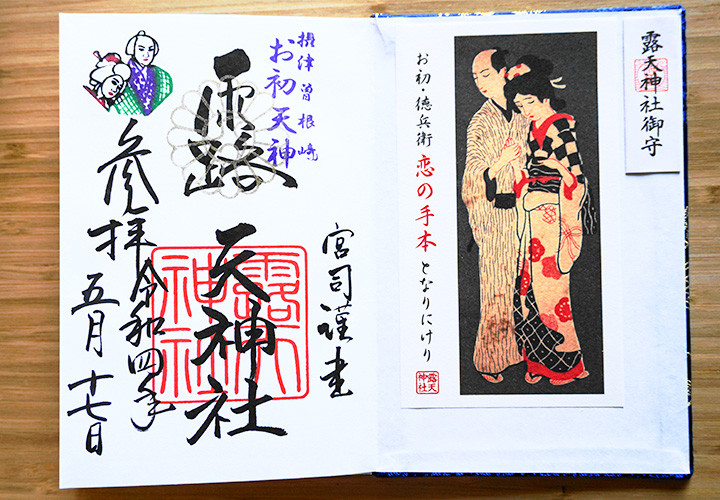 露天神社御守
お初・徳兵衛 恋の手本 となりにけり
露天神社
摂津曽根崎
お初天神
宮司謹書
露天神社
露天神社
参拝令和四年
五月十七日